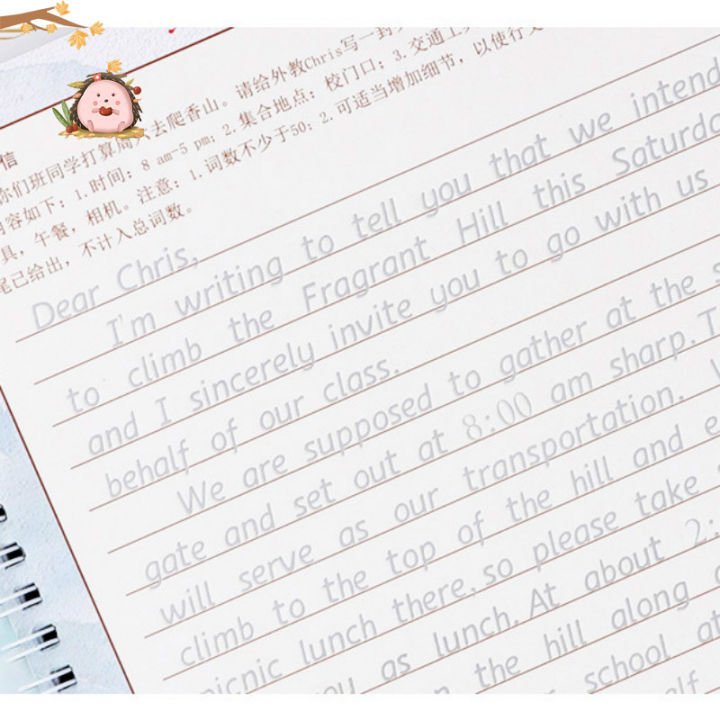 信
你们班同学打算周六去爬香山。请给外教Chris写一封
内容如下:1.时间:8 am-5 pm;2.集合地点:校门口;3.交通工
具,午餐,相机。注意:1.词数不少于50;2.可适当增加细节,以使行文
尾已给出,不计入总词数。
Dear Chris,
I'm writing to tell you that we intend
to climb the Fragrant Hill this Saturda
and I sincerely invite you to go with us
behalf of our class.
We are supposed to gather at the s
gate and set out at 8:00 am sharp. T
will serve as our transportation.
climb to the top of the hill and e
picnic lunch there, so please take
you as lunch. At about 2:
the hill along
school at
elf